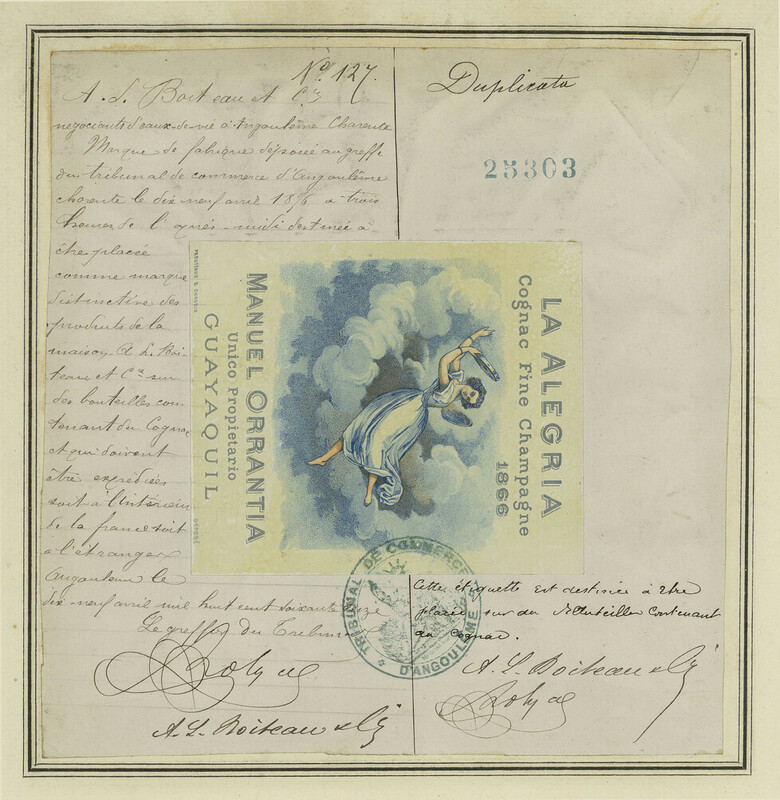 Nº 127.
A. L. Boiteau et Cie
negociants d'eaux-de-vie à Angoulême Charente
Marque de fabrique déposée au greffe
du tribunal de commerce d'Angoulême
charente le dix-neuf avril 1876 à trois
heures de l'après-midi destinée à
être placée
comme marque
distinctive des
produits de la
maison A. L. Boi-
teau et Cie sur
des bouteilles con-
tenant du Cognac
et qui doivent
être expédiées
soit à l'intérieur
de la france soit
à l'étranger
Angoulême le
dix-neuf avril mil huit cent soixante seize
Le greffier du Tribunal
A. L. Boiteau & Cie
Duplicata
25303
LA ALEGRIA
Cognac Fine Champagne
1866
MANUEL ORRANTIA
Unico Propietario
GUAYAQUIL
TRIBUNAL DE COMMERCE
D'ANGOULEME
Cette étiquette est destinée à être
placée sur des bouteilles contenant
du cognac.
A. L. Boiteau & Cie